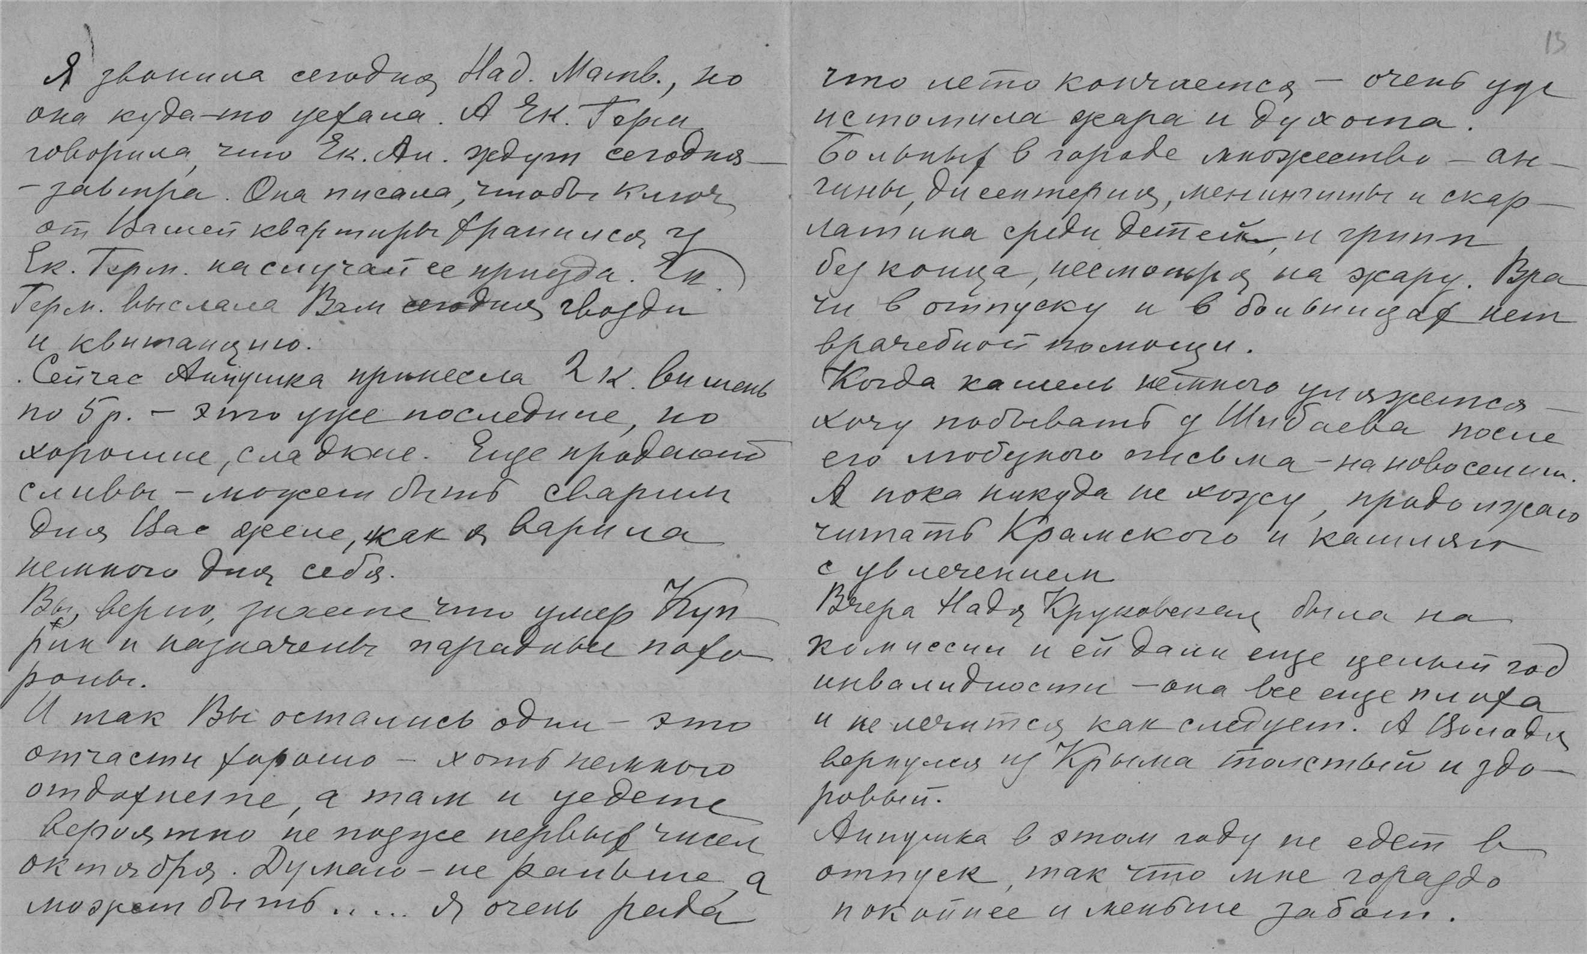 Я звонила сегодня Над. Матв., но
она куда-то уехала. А Ек. Герм
говорила, что Ек. Ан. ждут сегодня –
– завтра. Она писала, чтобы ключ
от Вашей квартиры хранился у
Ек. Герм. на случай ее приезда. Ек.
Герм. выслала Вам сегодня гвозди
и квитанцию.
Сейчас Аннушка принесла 2 к. вишень
по 5 р. – это уже последние, но
хорошие, сладкие. Еще продают
сливы – может быть сварим
для Вас желе, как я варила
немного для себя.
Вы, верно, знаете что умер Куп
рин и назначены парадные похо
роны.
И так Вы остались одни – это
отчасти хорошо – хоть немного
отдохнете, а там и уедете
вероятно не позже первых чисел
октября. Думаю – не раньше, а
может быть..... Я очень рада
13
что лето кончается – очень уж
истомила жара и духота.
Больных в городе множество – ан–
гины, дисентерия, менингиты и скар–
латина среди детей, и грипп
без конца, несмотря на жару. Вра
чи в отпуску и в больницах нет
врачебной помощи.
Когда кашель немного уляжется –
хочу побывать у Шибаева после
его любезного письма – на новоселии.
А пока никуда не хожу, продолжаю
читать Крамского и кашляю
с увлечением
Вчера Надя Круковская была на
комиссии и ей дали еще целый год
инвалидности – она все еще плоха
и не лечится как следует. А Володя
вернулся из Крыма толстый и здо–
ровый.
Аннушка в этом году не едет в
отпуск, так что мне гораздо
покойнее и меньше забот.